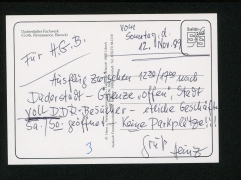 Duderstädter Fachwerk
vom
Sonntag, d.
12. Nov. 89
Für H.G.B.
Ausflug zwischen 1230/1700 nach
Duderstadt - Grenze offen, Stadt
voll DDR-Besucher - etliche Geschäfte
Sa./So. geöffnet keine Parkplätze!!
Gruß
Heinz
3